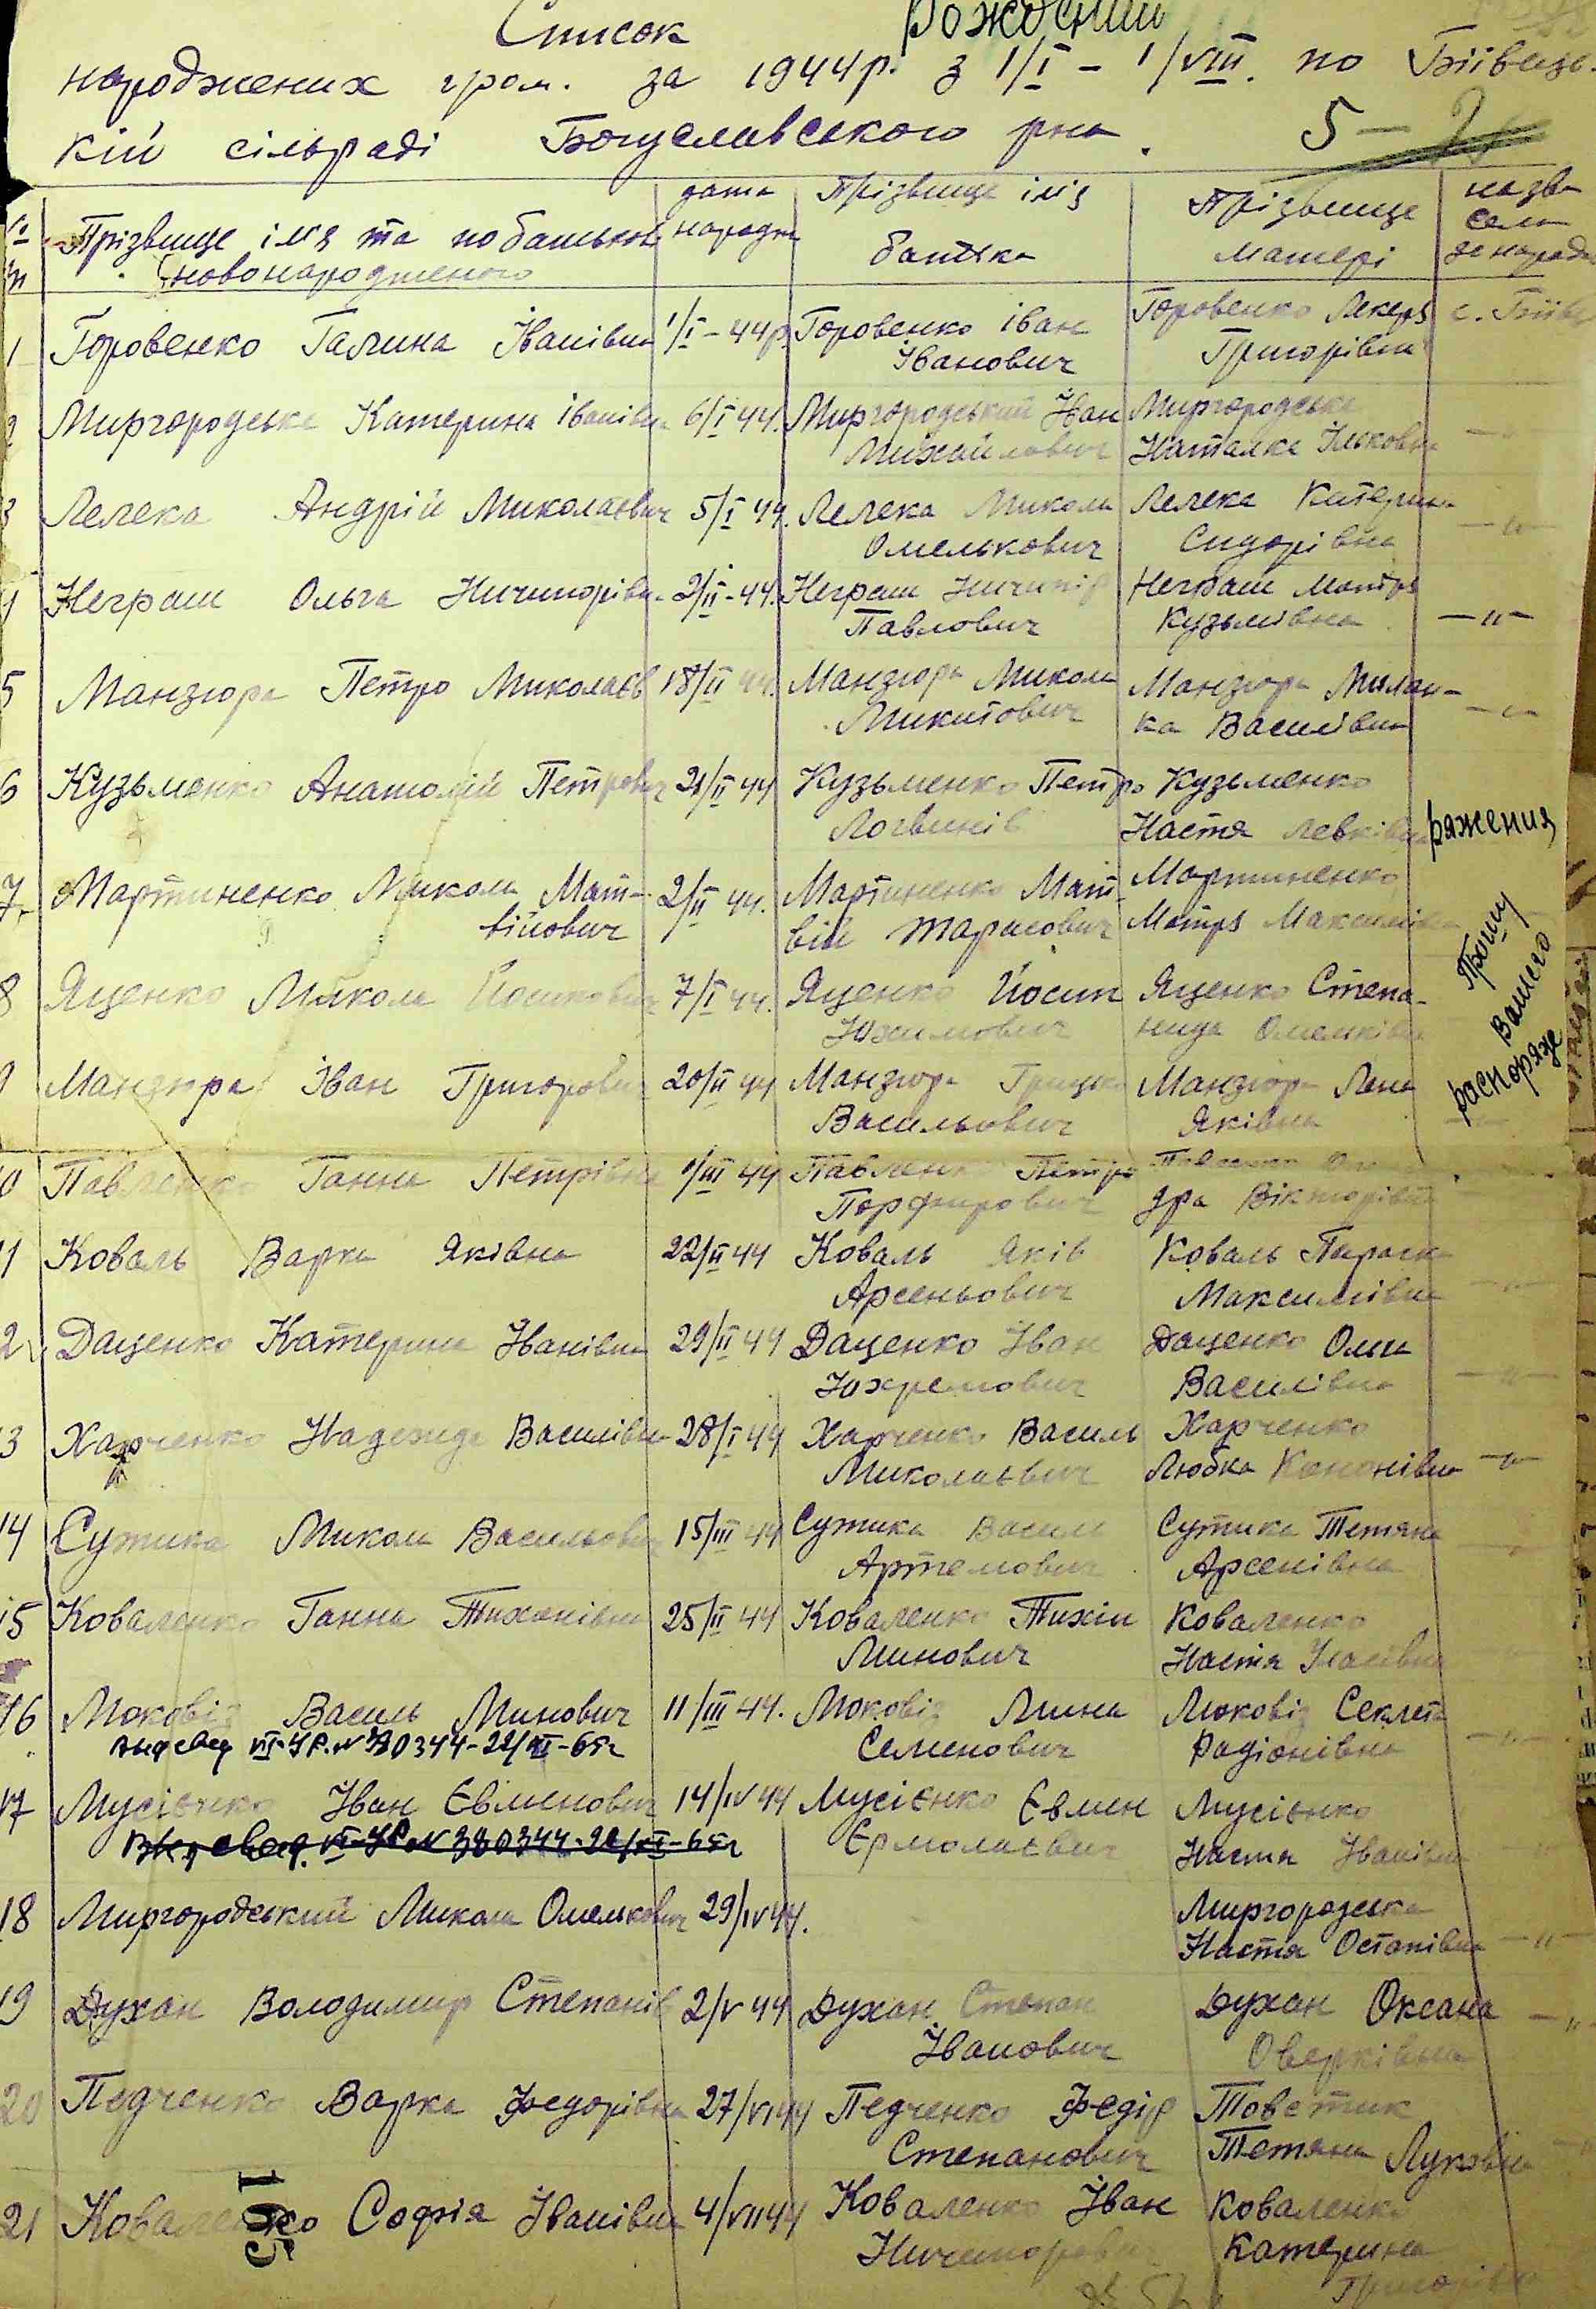 Список рождений
народжених гром. за 1944р. з 1/I - 1/VIII. по Біівець-
кій сільраді Богуславського рна. 5-
№ п/п Прізвище ім'я та по батькові новонародженого дата народж Прізвище ім'я батька Прізвище матері назва села де народ
1 Горовенко Галина Іванівна 1/I-44р. Горовенко Іван Горовенко Лекеря с. Біівц
Іванович Григорівна
2 Миргородська Катерина Іванівна 6/I 44. Миргородський Іван Миргородська
Михайлович Наталка Ільковна -"-
3 Лелека Андрій Миколаєвич 5/I 44. Лелека Микола Лелека Катерина
Омелькович Сидорівна -"-
4 Неграш Ольга Ничипорівна 2/II-44. Неграш Ничипір Неграш Мотря
Павлович Кузьмівна -"-
5 Манзюра Петро Миколаєв 18/II 44. Манзюра Микола Манзюра Милан-
Микитович ка Василівна -"-
6 Кузьменко Анатолій Петрович 21/II 44 Кузьменко Петро Кузьменко
Логвинів Настя Левківна ряжения
7. Мартиненко Микола Мат- 2/II 44. Мартиненко Мат- Мартиненко
війович вій Тарасович Мотря Максимівна
Прошу
Вашего
распоряже
8 Яценко Микола Йосипович 7/I 44. Яценко Йосип Яценко Степа-
Юхимович нида Омельківна
9 Манзюра Іван Григорович 20/II 44 Манзюра Грицько Манзюра Лена
Васильович Яківна -"-
10 Павленко Ганна Петрівна /III 44 Павленко Петро Павленко
Порфирович дра Вікторівна -"-
11 Коваль Варка Яківна 22/II 44 Коваль Яків Коваль Параска
Арсеньович Максимівна -"-
12 Даценко Катерина Іванівна 29/II 44 Даценко Іван Даценко Ольга
Юхремович Василівна -"-
13 Харченко Надежда Василівна 28/I 44 Харченко Василь Харченко
Миколаєвич Любка Кононівна -"-
14 Сутика Микола Васильович 15/III 44 Сутика Василь Сутика Тетяна
Артемович Арсенівна -"-
15 Коваленко Ганна Тихонівна 25/II 44 Коваленко Тихін Коваленко
Минович Настя Уласівна -"-
16 Моковіз Василь Минович 11/III 44. Моковіз Мина Моковіз Секлета
выд свид VII-УР. № 380344-22/XI-65г Семенович Радіонівна -"-
17 Мусієнко Іван Євменович 14/IV 44 Мусієнко Євмен Мусієнко
выд свид. VII-УР № 380344-22/XI-65г Єрмолаєвич Настя Іванівна -"-
18 Миргородський Микола Омелькович 29/IV 44. Миргородська
Настя Остапівна -"-
19 Духан Володимир Степанів 2/V 44 Духан Степан Духан Оксана
Іванович Оверківна -"-
20 Педченко Варка Федорівна 27/VI 44 Педченко Федір Товстик
Степанович Тетяна Луківна -"-
21 Коваленко Софія Іванівна 4/VII 44 Коваленко Іван Коваленко
Ничипорович Катерина
Григорівна